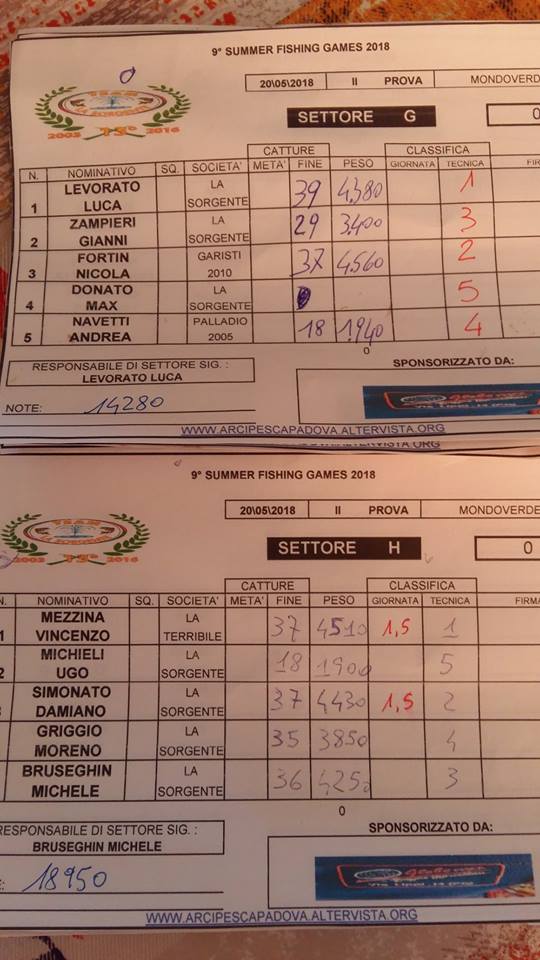 9° SUMMER FISHING GAMES 2018
20\05\2018 II PROVA MONDOVERDE
SETTORE G 0
CATTURE CLASSIFICA
N. NOMINATIVO SQ. SOCIETA' META' FINE PESO GIORNATA TECNICA FIR
1 LEVORATO LUCA LA SORGENTE 39 4380 1
2 ZAMPIERI GIANNI LA SORGENTE 29 3400 3
3 FORTIN NICOLA GARISTI 2010 37 4560 2
4 DONATO MAX LA SORGENTE 5
5 NAVETTI ANDREA PALLADIO 2005 18 1940 4
0
RESPONSABILE DI SETTORE SIG. : SPONSORIZZATO DA:
LEVORATO LUCA
NOTE: 14280
WWW.ARCIPESCAPADOVA.ALTERVISTA.ORG
9° SUMMER FISHING GAMES 2018
20\05\2018 II PROVA MONDOVERDE
SETTORE H 0
CATTURE CLASSIFICA
N. NOMINATIVO SQ. SOCIETA' META' FINE PESO GIORNATA TECNICA FIRMA
1 MEZZINA VINCENZO LA TERRIBILE 37 4510 1,5 1
2 MICHIELI UGO LA SORGENTE 18 1900 5
SIMONATO DAMIANO LA SORGENTE 37 4430 1,5 2
GRIGGIO MORENO LA SORGENTE 35 3850 4
BRUSEGHIN MICHELE LA SORGENTE 36 4250 3
0
RESPONSABILE DI SETTORE SIG. : SPONSORIZZATO DA:
BRUSEGHIN MICHELE
18950
WWW.ARCIPESCAPADOVA.ALTERVISTA.ORG